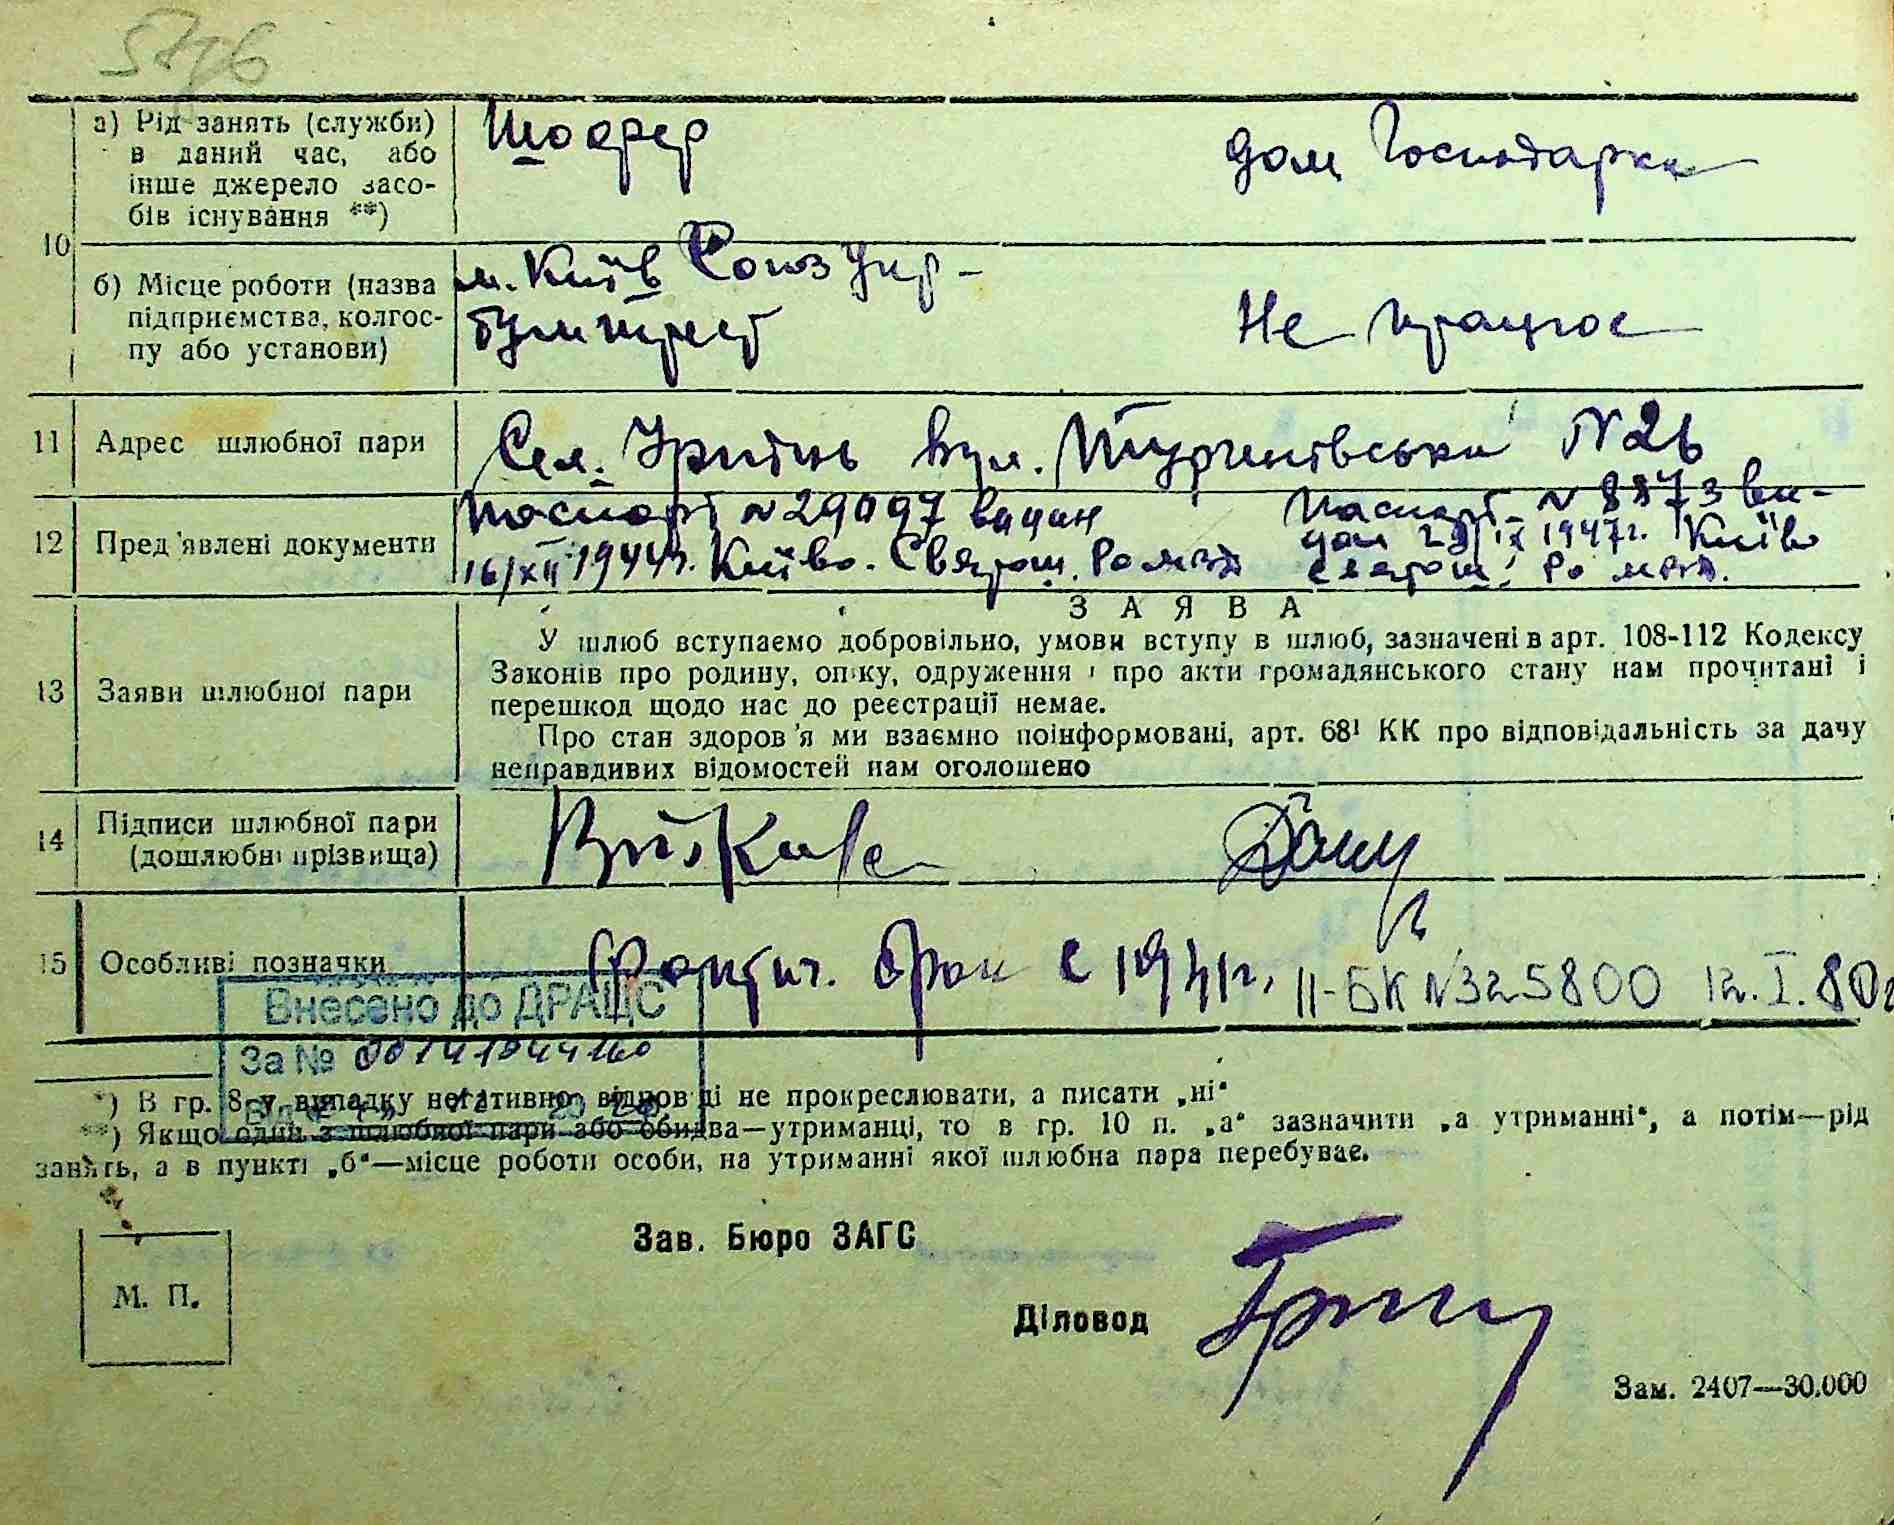 5446
10
а) Рід занять (служби) в даний час, або інше джерело засобів існування **)
Шофер
дом Господарка
б) Місце роботи (назва підприємства, колгоспу або установи)
м. Київ Союз Укр-
бумтрест
Не працює
11 Адрес шлюбної пари
Сел. Ірпінь вул. Тургенівська N 2б
12 Пред'явлені документи
Паспорт N 29097 видан
16/XII-1944р. Київо. Святош. Ро мгб
Паспорт N 8873 ви-
дан IX 1947г. Київо
Святош. Ро
З А Я В А
13 Заяви шлюбної пари
У шлюб вступаємо добровільно, умови вступу в шлюб, зазначені в арт. 108-112 Кодексу
Законів про родину, опіку, одруження і про акти громадянського стану нам прочитані і
перешкод щодо нас до реєстрації немає.
Про стан здоров'я ми взаємно поінформовані, арт. 68¹ КК про відповідальність за дачу
неправдивих відомостей нам оголошено
14 Підписи шлюбної пари
(дошлюбні прізвища)
15 Особливі позначки
Фактич. брак с 1941г. II-БК N325800 12.I.80г
Внесено до ДРАЦС
За № 00141944160
*) В гр. 8 у випадку негативної відповіді не прокреслювати, а писати „ні“
**) Якщо один з шлюбної пари або обидва—утриманці, то в гр. 10 п. „а“ зазначити „а утриманні“, а потім—рід
занять, а в пункті „б“—місце роботи особи, на утриманні якої шлюбна пара перебуває.
Зав. Бюро ЗАГС
М. П.
Діловод
Зам. 2407—30.000